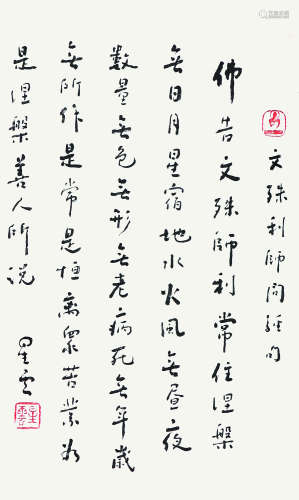 文殊利師問經句
佛告文殊師利常住涅槃
無日月星宿地水火風無晝夜
數量無色無形無老病死無年歲
無所作是常是恒離眾苦業如
是涅槃善人所說 星雲